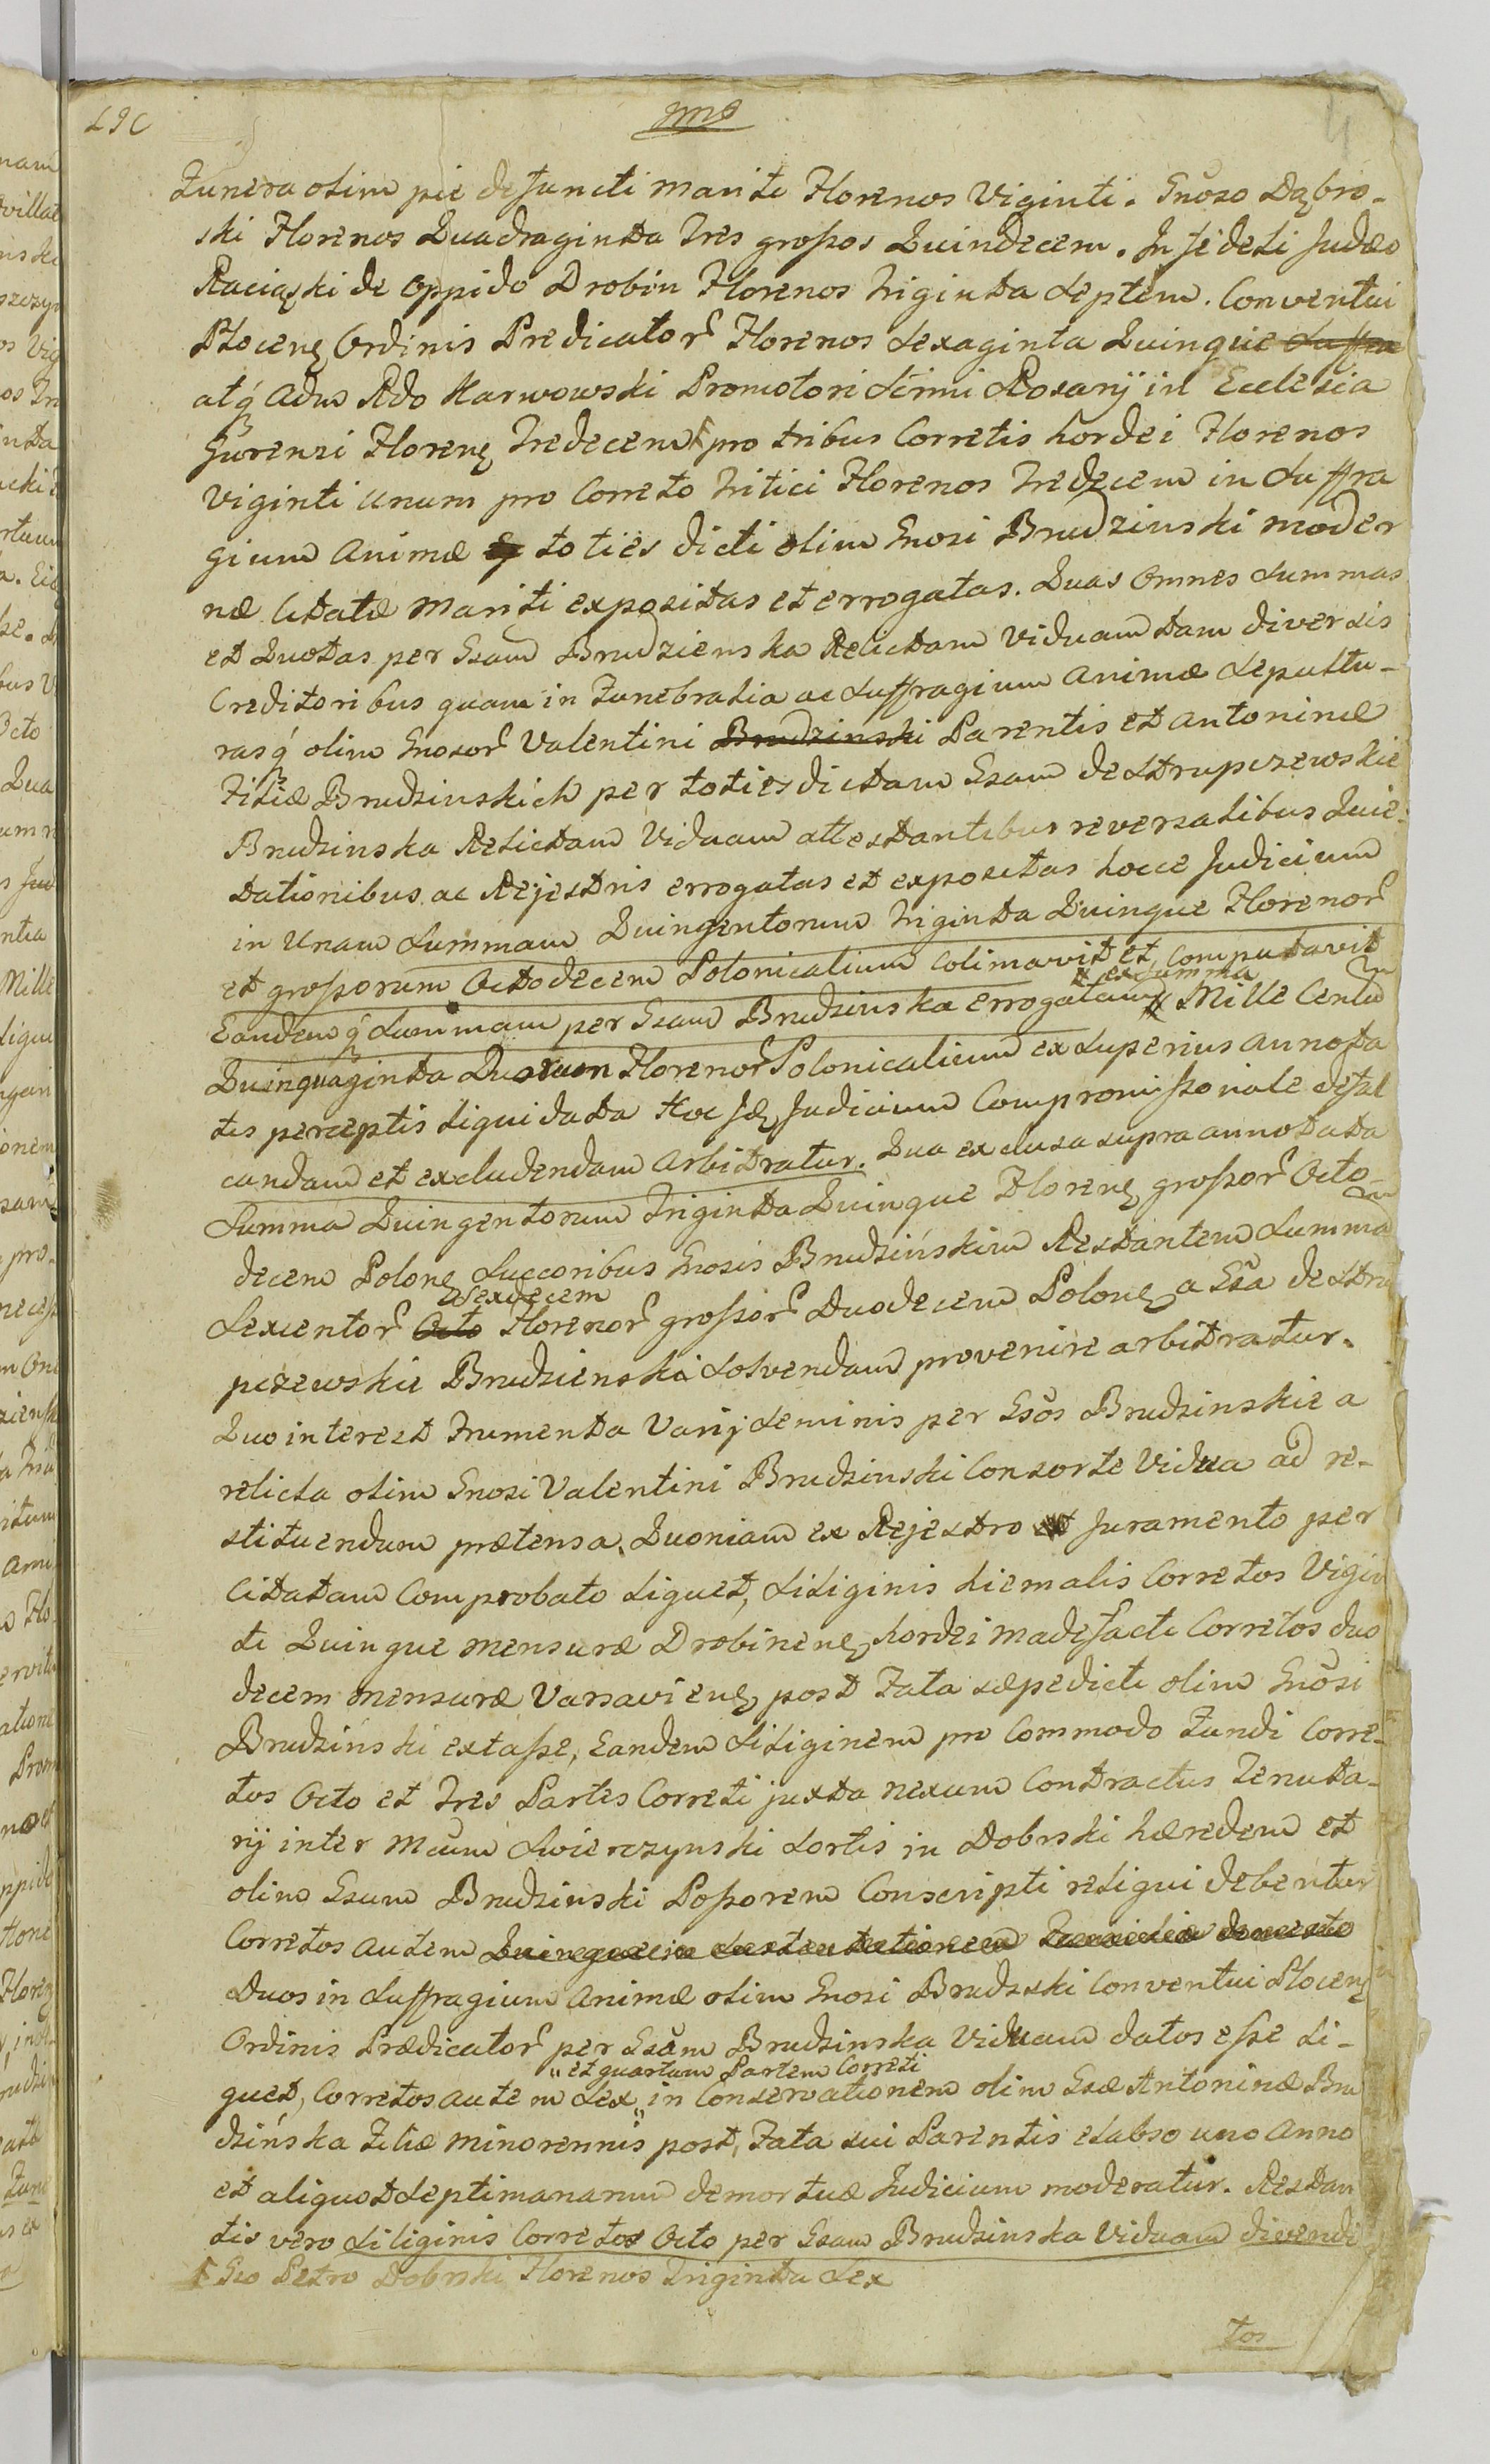 Funera olim pie defuncti mariti Florenos Viginti. Gnoso Dąbro-
ski Florenos Quadraginta Tres grossos Quindecem. Infideli Judæo
Raciąski de Oppido Drobin Florenos Triginta Septem. Conventui
Plocens Ordinis Predicator Florenos Sexaginta Quinque
atq Adm Rdo Karwowski Promotori Sctmi Rosarij in Ecclesia
Gurensi Florens Tredecem pro tribus Corretis hordei Florenos
Viginti Unum pro Correto Tritici Florenos Tredecem in Suffra
gium Animæ toties dicti olim Gnosi Brudzinski moder
næ Citatæ Mariti expositas et errogatas. Quas Omnes Summas
et Quotas per Gsam Brudzienska Relictam Viduam tam diversis
Creditoribus quam in Funebralia ac Suffragium Animæ Sepultu-
rasq olim Gnosor Valentini Brudzinski Parentis et Antoninæ
Filiæ Brudzinskich per toties dictam Gsam de Strupczewskie
Brudzinska Relictam Viduam attestantibus reversalibus Quie-
tationibus ac Rejestris errogatas et expositas hocce Judicium
in Unam Summam Quingentorum Triginta Quinque Florenor
et grossorum Octodecem Polonicalium colimavit et computavit
x ex summa
Eandemq Summam per Gsam Brudzinska errogatam x Mille Centu
Quinquaginta Duorum Florenor Polonicalium ex Superius annota
tis perceptis liquidata Hoc Judicium Compromissoriale defal
candam et excludendam Arbitratur. Qua exclusa supra annotata
Summa Quingentorum Triginta Quinque Florens grossor Octo-
decem Polons Succoribus Gnosis Brudzińskim Restantem Summã
Sexdecem
Sexcentor Octo Florenor grossor Duodecem Polons a Gsa de Stru
pczewskie Brudzienska Solvendam provenire arbitratur.
Quo interest Frumenta Varij Seminis per Gsos Brudzinskie a
relicta olim Gnosi Valentini Brudzinski Consorte Vidua ad re-
stituendum prætensa. Quoniam ex Rejestro Juramento per
Citatam Comprobato liquet, Siliginis hiemalis Corretos Vigin
ti Quinque mensuræ Drobinens, hordei madefacti Corretos duo
decem mensuræ Varsaviens, post Fata sæpedicti olim Gnosi
Brudzinski extasse, Eandem Siliginem pro Commodo Fundi Corre-
tos Octo et Tres Partes Correti juxta nexum Contractus Tenuta-
rij inter Mcum Swierczynski Sortis in Dobrski hæredem et
olim Gsum Brudzinski Possorem Conscripti relinqui debentur
Corretos autem Quinque in Sustentationem
Duos in Suffragium Animæ olim Gnosi Brudzski Conventui Plocens
Ordinis Prædicator per Gsam Brudzinska Viduam datos esse li-
" et quartam Partem Correti
quet, Corretos autem Sex " in Conservationem olim Gsæ Antoninæ Bru
dzińska Filiæ minorennis post, Fata sui Parentis elabso uno Anno
et aliquot Septimanarum demortuæ Judicium moderatur. Restan
tis vero Siliginis Corretos Octo per Gsam Brudzinska Viduam divendi
Gso Petro Dobrski Florenos Triginta Sex
tos